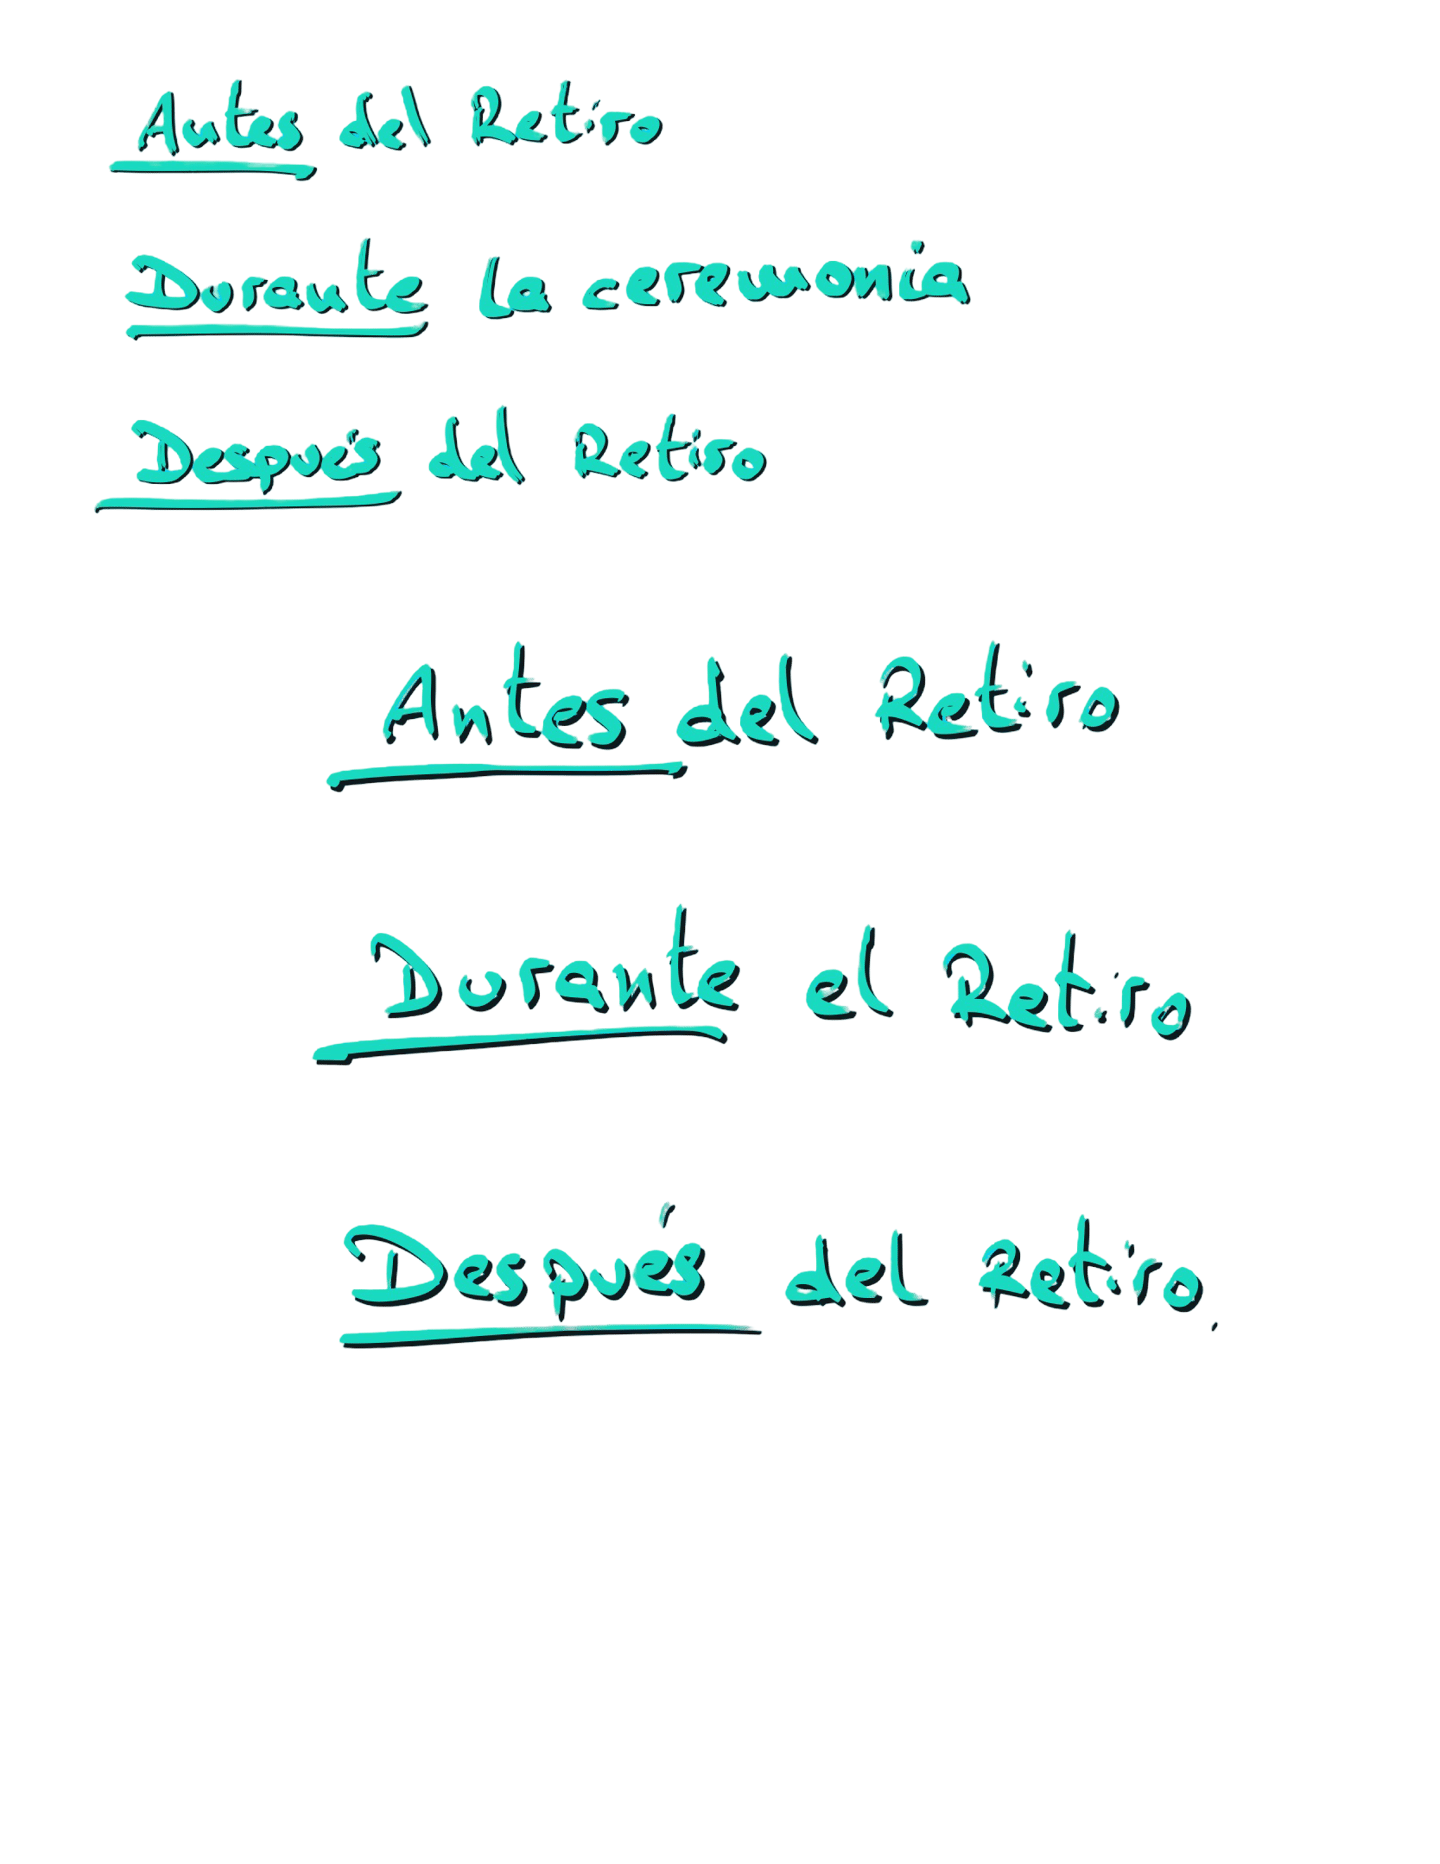 Antes del Retiro
Durante la ceremonia
Después del Retiro
Antes del Retiro
Durante el Retiro
Después del Retiro.